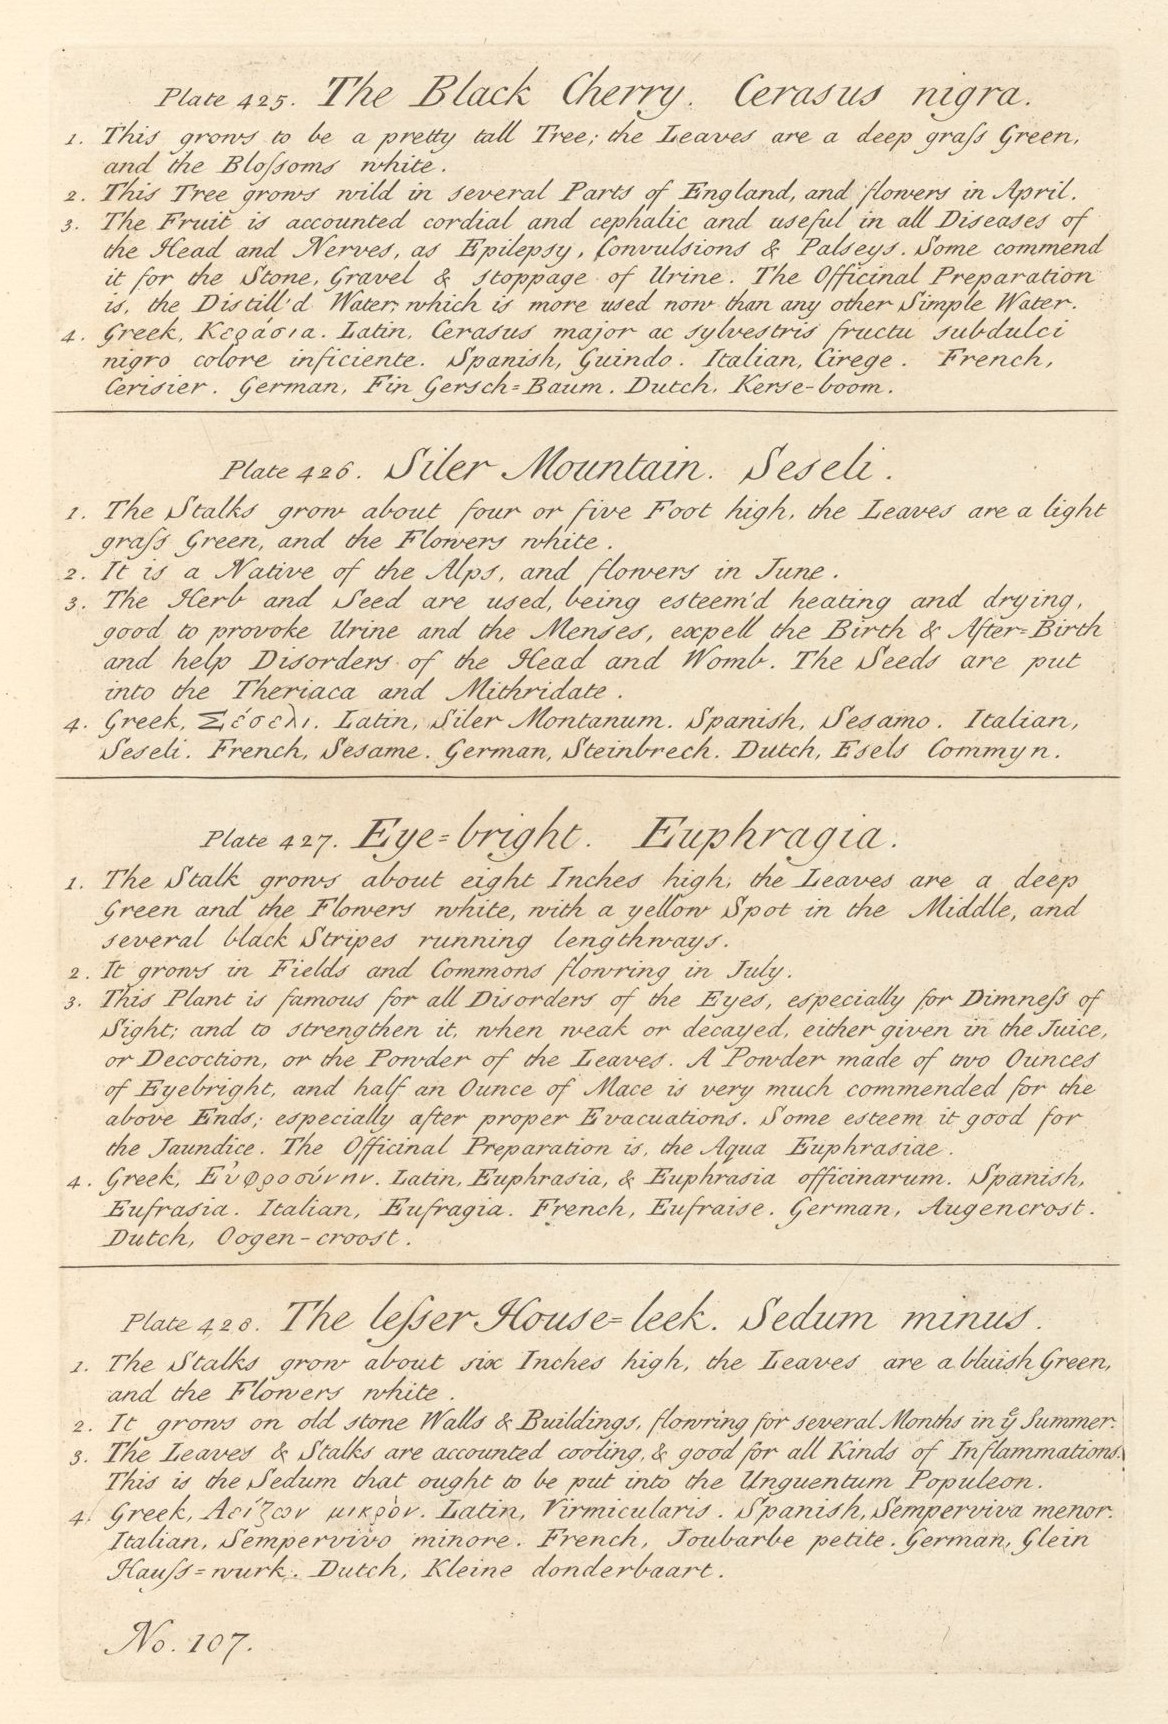 Plate 425. The Black Cherry. Cerasus nigra.
1. This grows to be a pretty tall Tree; the Leaves are a deep graſs Green,
and the Bloſsoms white.
2. This Tree grows wild in several Parts of England, and flowers in April.
3. The Fruit is accounted cordial and cephalic and useful in all Diseases of
the Head and Nerves, as Epilepsy, Convulsions & Palseys. Some commend
it for the Stone, Gravel & stoppage of Urine. The Officinal Preparation
is, the Distill'd Water; which is more used now than any other Simple Water.
4. Greek, Κεράσια. Latin, Cerasus major ac sylvestris fructu subdulci
nigro colore inficiente. Spanish, Guindo. Italian, Cirege. French,
Cerisier. German, Fin Gersch=Baum. Dutch, Kerse-boom.
Plate 426. Siler Mountain. Seseli.
1. The Stalks grow about four or five Foot high, the Leaves are a light
graſs Green, and the Flowers white.
2. It is a Native of the Alps, and flowers in June.
3. The Herb and Seed are used, being esteem'd heating and drying,
good to provoke Urine and the Menses, expell the Birth & After=Birth
and help Disorders of the Head and Womb. The Seeds are put
into the Theriaca and Mithridate.
4. Greek, Σέσελι. Latin, Siler Montanum. Spanish, Sesamo. Italian,
Seseli. French, Sesame. German, Steinbrech. Dutch, Esels Commyn.
Plate 427. Eye=bright. Euphragia.
1. The Stalk grows about eight Inches high, the Leaves are a deep
Green and the Flowers white, with a yellow Spot in the Middle, and
several black Stripes running lengthways.
2. It grows in Fields and Commons flowring in July.
3. This Plant is famous for all Disorders of the Eyes, especially for Dimneſs of
Sight; and to strengthen it, when weak or decayed, either given in the Juice,
or Decoction, or the Powder of the Leaves. A Powder made of two Ounces
of Eyebright, and half an Ounce of Mace is very much commended for the
above Ends; especially after proper Evacuations. Some esteem it good for
the Jaundice. The Officinal Preparation is, the Aqua Euphrasiae.
4. Greek, Εὐφροσύνην. Latin, Euphrasia, & Euphrasia officinarum. Spanish,
Eufrasia. Italian, Eufragia. French, Eufraise. German, Augencrost.
Dutch, Oogen-croost.
Plate 428. The leſser House=leek. Sedum minus.
1. The Stalks grow about six Inches high, the Leaves are a bluish Green,
and the Flowers white.
2. It grows on old stone Walls & Buildings, flowring for several Months in yͤ Summer.
3. The Leaves & Stalks are accounted cooling, & good for all Kinds of Inflammations.
This is the Sedum that ought to be put into the Unguentum Populeon.
4. Greek, Αείζων μικρὸν. Latin, Virmicularis. Spanish, Semperviva menor.
Italian, Sempervivo minore. French, Joubarbe petite. German, Glein
Hauſs=wurk. Dutch, Kleine donderbaart.
No. 107.